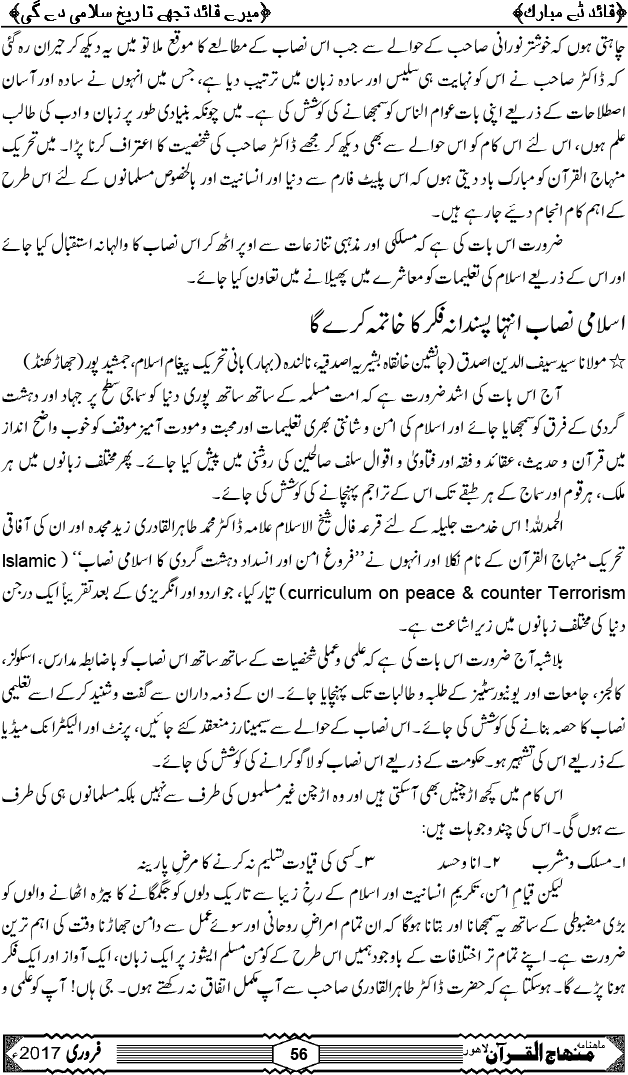 ﴿قائد ڈے مبارک﴾ ﴿میرے قائد تجھے تاریخ سلامی دے گی﴾
چاہتی ہوں کہ خوشتر نورانی صاحب کے حوالے سے جب اس نصاب کے مطالعے کا موقع ملا تو میں یہ دیکھ کر حیران رہ گئی
کہ ڈاکٹر صاحب نے اس کو نہایت ہی سلیس اور سادہ زبان میں ترتیب دیا ہے، جس میں انہوں نے سادہ اور آسان
اصطلاحات کے ذریعے اپنی بات عوام الناس کو سمجھانے کی کوشش کی ہے۔ میں چونکہ بنیادی طور پر زبان و ادب کی طالب
علم ہوں، اس لئے اس کام کو اس حوالے سے بھی دیکھ کر مجھے ڈاکٹر صاحب کی شخصیت کا اعتراف کرنا پڑا۔ میں تحریک
منہاج القرآن کو مبارک باد دیتی ہوں کہ اس پلیٹ فارم سے دنیا اور انسانیت اور بالخصوص مسلمانوں کے لئے اس طرح
کے اہم کام انجام دیئے جا رہے ہیں۔
ضرورت اس بات کی ہے کہ مسلکی اور مذہبی تنازعات سے اوپر اٹھ کر اس نصاب کا والہانہ استقبال کیا جائے
اور اس کے ذریعے اسلام کی تعلیمات کو معاشرے میں پھیلانے میں تعاون کیا جائے۔
اسلامی نصاب انتہا پسندانہ فکر کا خاتمہ کرے گا
☆ مولانا سید سیف الدین اصدق (جانشین خانقاہ بشیریہ اصدقیہ، نالندہ (بہار) بانی تحریک پیغام اسلام، جمشید پور (جھاڑکھنڈ)
آج اس بات کی اشد ضرورت ہے کہ امت مسلمہ کے ساتھ ساتھ پوری دنیا کو سماجی سطح پر جہاد اور دہشت
گردی کے فرق کو سمجھایا جائے اور اسلام کی امن و شانتی بھری تعلیمات اور محبت و مودت آمیز موقف کو خوب واضح انداز
میں قرآن و حدیث، عقائد و فقہ اور فتاویٰ و اقوال سلف صالحین کی روشنی میں پیش کیا جائے۔ پھر مختلف زبانوں میں ہر
ملک، ہر قوم اور سماج کے ہر طبقے تک اس کے تراجم پہنچانے کی کوشش کی جائے۔
الحمدللہ! اس خدمت جلیلہ کے لئے قرعہ فال شیخ الاسلام علامہ ڈاکٹر محمد طاہر القادری زید مجدہ اور ان کی آفاقی
تحریک منہاج القرآن کے نام نکلا اور انہوں نے ’’فروغ امن اور انسداد دہشت گردی کا اسلامی نصاب‘‘ (Islamic
curriculum on peace & counter Terrorism) تیار کیا، جو اردو اور انگریزی کے بعد تقریباً ایک درجن
دنیا کی مختلف زبانوں میں زیر اشاعت ہے۔
بلاشبہ آج ضرورت اس بات کی ہے کہ علمی و عملی شخصیات کے ساتھ ساتھ اس نصاب کو باضابطہ مدارس، اسکولز،
کالجز، جامعات اور یونیورسٹیز کے طلبہ و طالبات تک پہنچایا جائے۔ ان کے ذمہ داران سے گفت و شنید کرکے اسے تعلیمی
نصاب کا حصہ بنانے کی کوشش کی جائے۔ اس نصاب کے حوالے سے سیمینارز منعقد کئے جائیں، پرنٹ اور الیکٹرانک میڈیا
کے ذریعے اس کی تشہیر ہو۔ حکومت کے ذریعے اس نصاب کو لاگو کرانے کی کوشش کی جائے۔
اس کام میں کچھ اڑچنیں بھی آسکتی ہیں اور وہ اڑچن غیر مسلموں کی طرف سے نہیں بلکہ مسلمانوں ہی کی طرف
سے ہوں گی۔ اس کی چند وجوہات ہیں:
۱۔ مسلک و مشرب ۲۔ انا و حسد ۳۔ کسی کی قیادت تسلیم نہ کرنے کا مرض پارینہ
لیکن قیامِ امن، تکریمِ انسانیت اور اسلام کے رخِ زیبا سے تاریک دلوں کو جگمگانے کا بیڑہ اٹھانے والوں کو
بڑی مضبوطی کے ساتھ یہ سمجھانا اور بتانا ہوگا کہ ان تمام امراضِ روحانی اور سوئے عمل سے دامن جھاڑنا وقت کی اہم ترین
ضرورت ہے۔ اپنے تمام تر اختلافات کے باوجود ہمیں اس طرح کے کومن مسلم ایشوز پر ایک زبان، ایک آواز اور ایک فکر
ہونا پڑے گا۔ ہوسکتا ہے کہ حضرت ڈاکٹر طاہر القادری صاحب سے آپ مکمل اتفاق نہ رکھتے ہوں۔ جی ہاں! آپ کو علمی و
ماہنامہ منہاج القرآن لاہور 56 فروری 2017ء